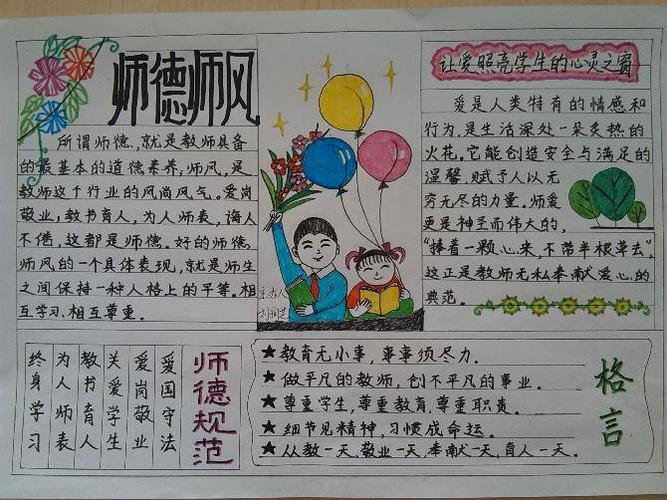 师德师风
所谓师德,就是教师具备
的最基本的道德素养,师风,是
教师这个行业的风尚风气。爱岗
敬业,教书育人,为人师表,诲人
不倦,这都是师德。好的师德,
师风的一个具体表现,就是师生
之间保持一种人格上的平等。相
互学习,相互尊重。
主办人
让爱照亮学生的心灵之窗
爱是人类特有的情感和
行为,是生活深处一朵炙热的
火花。它能创造安全与满足的
温馨,赋予人以无
穷无尽的力量。师爱
更是神圣而伟大的,
“捧着一颗心来,不带半根草去”,
这正是教师无私奉献爱心的
典范。
师德规范
爱国守法
爱岗敬业
关爱学生
教书育人
为人师表
终身学习
格言
★教育无小事,事事须尽力.
★做平凡的教师,创不平凡的事业。
★尊重学生,尊重教育,尊重职责。
★细节见精神,习惯成命运。
★从教一天,敬业一天,奉献一天,育人一天。